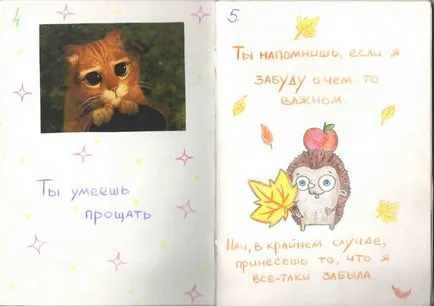 4.
Ты умеешь
прощать
5.
Ты напомнишь, если я
забуду о чем-то
важном.
Или, в крайнем случае,
принесешь то, что я
все-таки забыла.